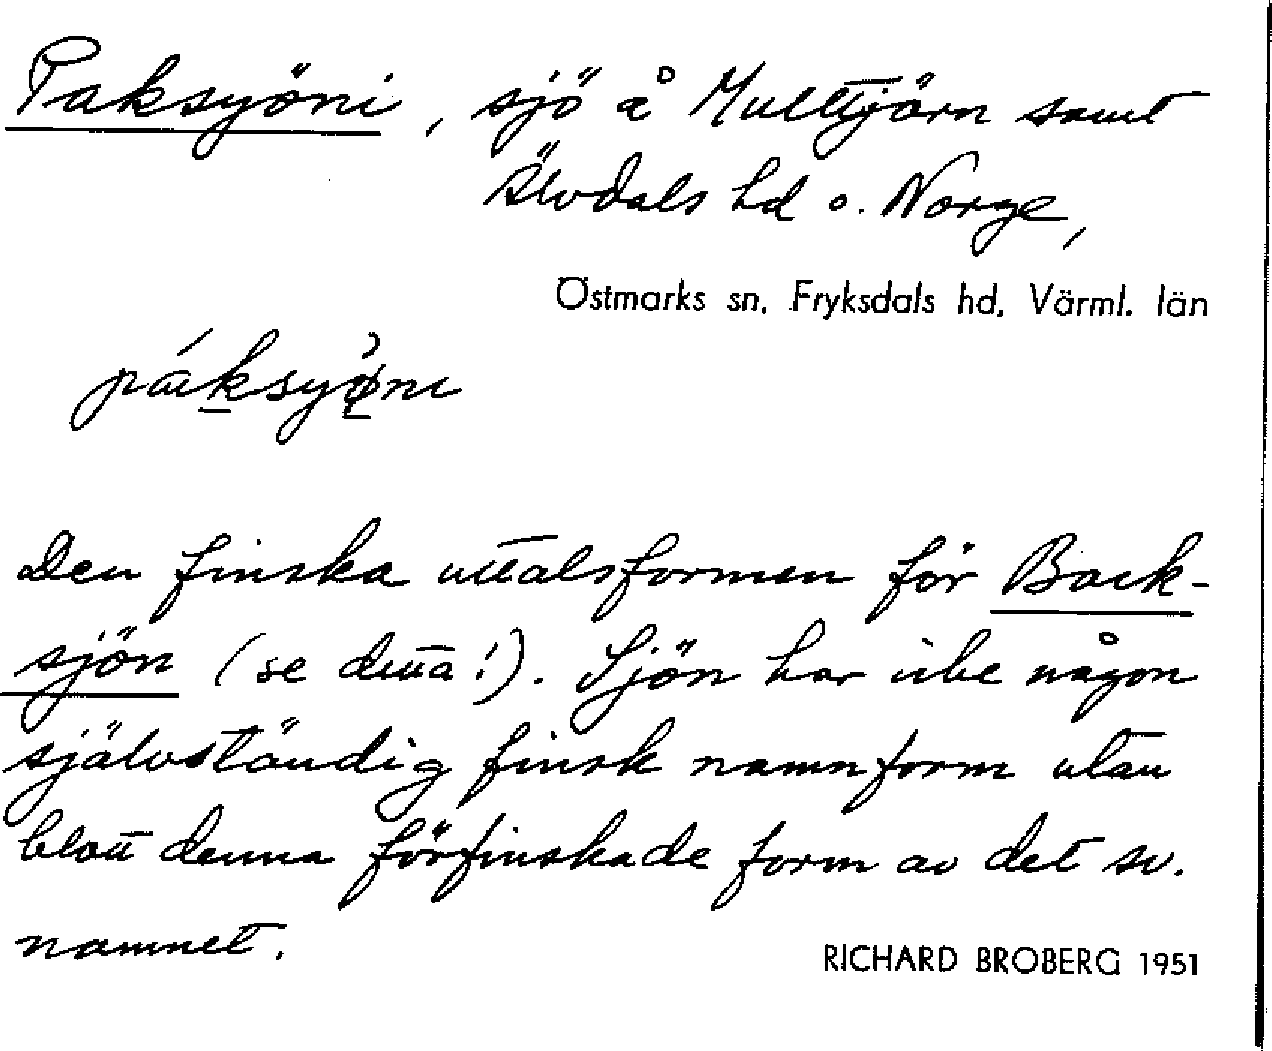 Paksyöni, sjö å Multtjärn samt
Älvdals hd o. Norge,
Östmarks sn. Fryksdals hd. Värml. län
Den finska uttalsformen för Back-
sjön (se detta!). Sjön har icke någon
självständig finsk namnform utan
blott denna förfinskade form av det sv.
namnet.
RICHARD BROBERG 1951